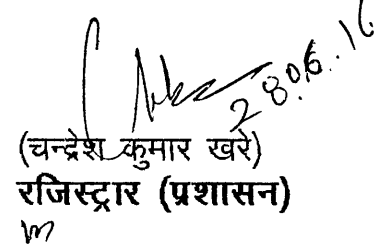 28.06.16
(चन्द्रेश कुमार खरे)
रजिस्ट्रार (प्रशासन)